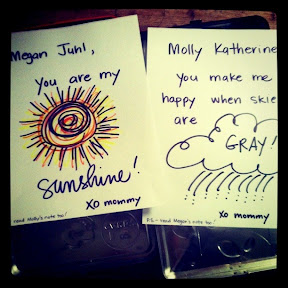 Megan Juhl,
You are my
sunshine!
xo mommy
read Molly's note too!
Molly Katherine
You make me
happy when skie
are
GRAY!
xo mommy
P.S. - read Megan's note too!